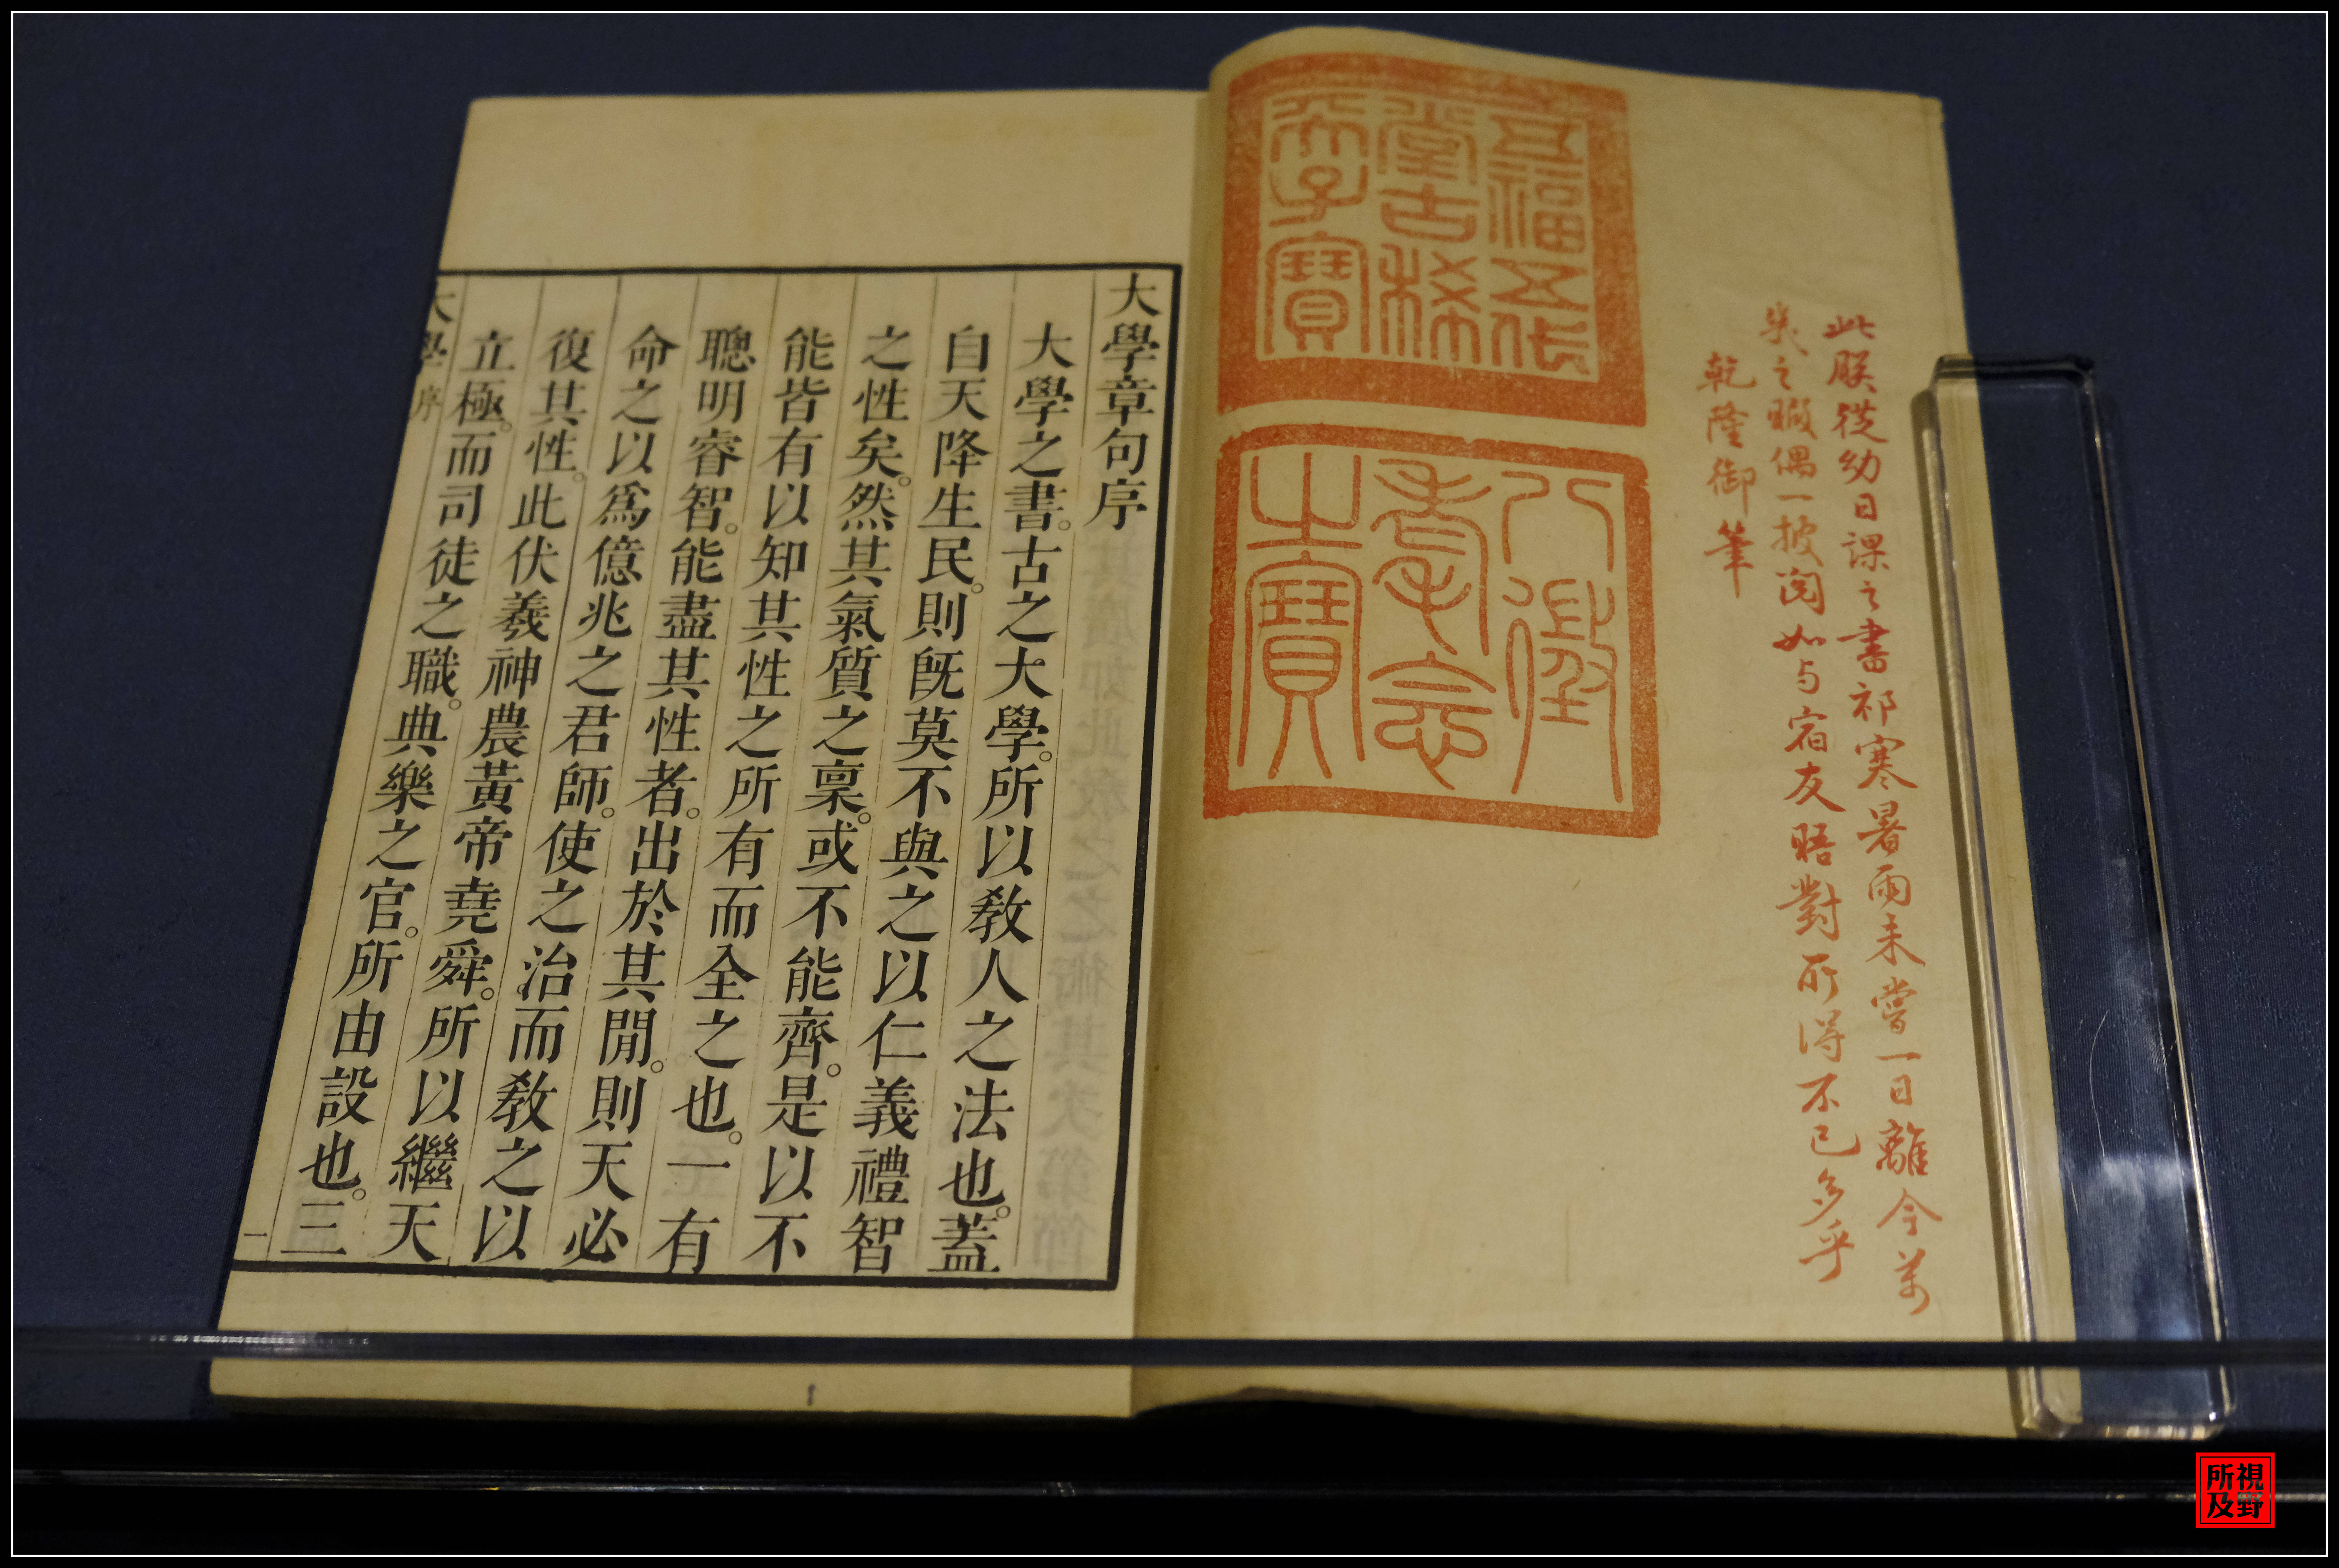 此朕從幼日課之書祁寒暑雨未嘗一日離今萬
幾之暇偶一披閱如与宿友晤對所得不已多乎
乾隆御筆
五福五代
堂古稀
天子寶
八徵
耄念
之寶
大學章句序
大學之書。古之大學。所以敎人之法也。蓋
自天降生民。則旣莫不與之以仁義禮智
之性矣。然其氣質之稟。或不能齊。是以不
能皆有以知其性之所有而全之也。一有
聰明睿智。能盡其性者。出於其閒。則天必
命之以爲億兆之君師。使之治而敎之以
復其性。此伏羲神農黃帝堯舜。所以繼天
立極。而司徒之職。典樂之官。所由設也。三
大學序
一
視野
所及